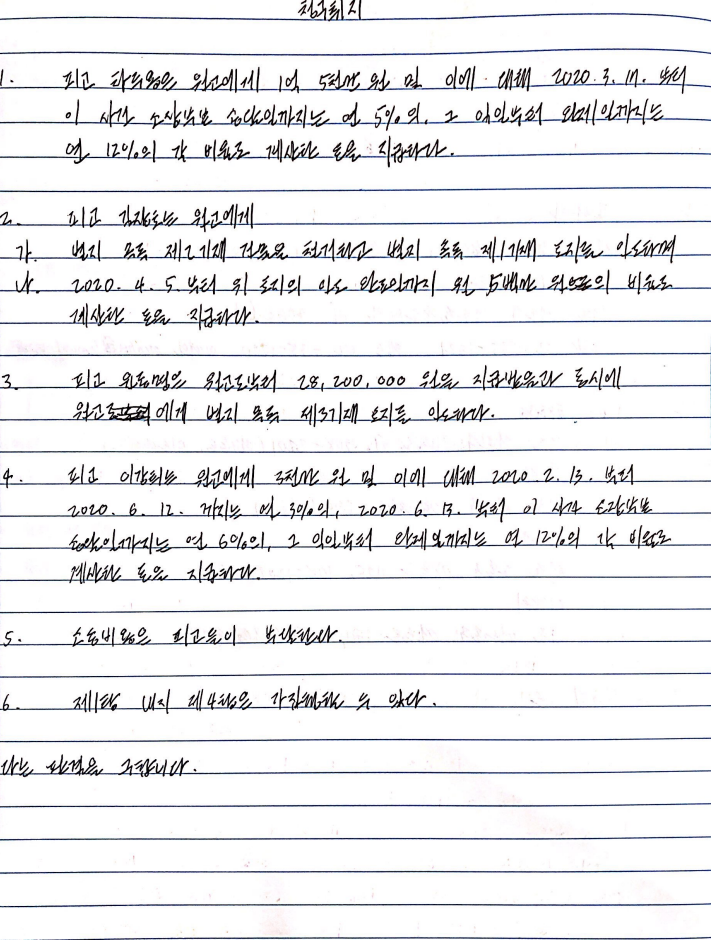 청구취지
1. 피고 박두영은 원고에게 1억 5천만 원 및 이에 대해 2020. 3. 17. 부터
이 사건 소장부본 송달일까지는 연 5%의, 그 익일부터 완제일까지는
연 12%의 각 비율로 계산한 돈을 지급하라.
2. 피고 원고에게
가. 별지 목록 제2기재 건물을 철거하고 별지 목록 제1기재 토지를 인도하며
나. 2020. 4. 5. 부터 위 토지의 인도 완료일까지 월 5백만 원으로의 비율로
계산한 돈을 지급하라.
3. 피고 원고로부터 28,200,000 원을 지급받음과 동시에
원고에게 별지 목록 제3기재 토지를 인도하라.
4. 피고 원고에게 3천만 원 및 이에 대해 2020 2. 13. 부터
2020. 6. 12. 까지는 연 3%의, 2020. 6. 13. 부터 이 사건 소장부본
송달일까지는 연 6%의, 그 익일부터 완제일까지는 연 12%의 각 비율로
계산한 돈을 지급하라.
5. 소송비용은 피고들이 부담한다.
6. 제1항 내지 제4항은 가집행할 수 있다.
라는 판결을 구합니다.